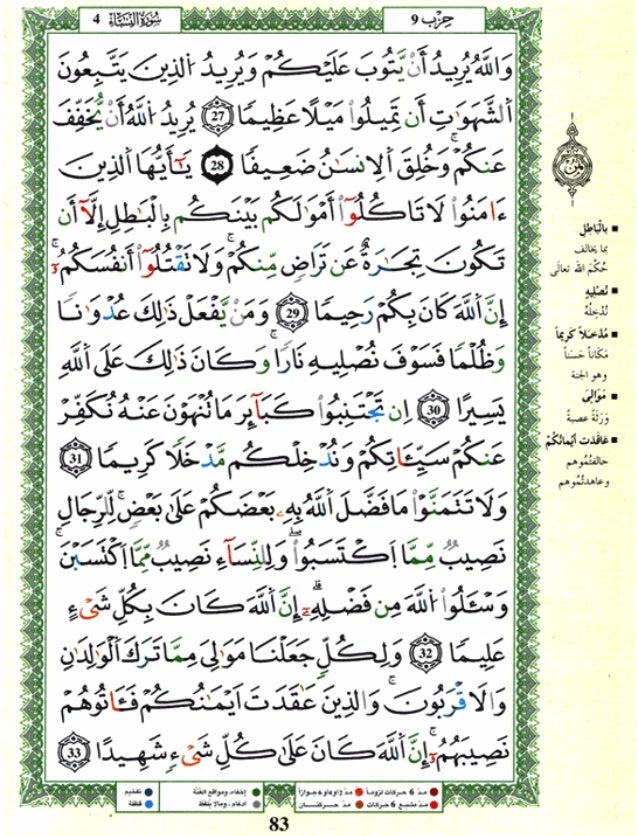 سُورَةُ النِّسَاءِ 4
حِزْب 9
وَاللَّهُ يُرِيدُ أَنْ يَّتُوبَ عَلَيْكُمْ وَيُرِيدُ الذِينَ يَتَّبِعُونَ
الشَّهَوَٰتِ أَن تَمِيلُوا مَيْلًا عَظِيمًا 27 يُرِيدُ اللَّهُ أَنْ يُّخَفِّفَ
عَنكُمْ وَخُلِقَ الِانسَٰنُ ضَعِيفًا 28 يَٰٓأَيُّهَا الذِينَ
ءَامَنُوا لَا تَاكُلُوٓا أَمْوَٰلَكُم بَيْنَكُم بِالْبَٰطِلِ إِلَّآ أَن
تَكُونَ تِجَٰرَةٌ عَن تَرَاضٍ مِّنكُمْ وَلَا تَقْتُلُوٓا أَنفُسَكُمُۥٓ
إِنَّ اللَّهَ كَانَ بِكُمْ رَحِيمًا 29 وَمَنْ يَّفْعَلْ ذَٰلِكَ عُدْوَٰنًا
وَظُلْمًا فَسَوْفَ نُصْلِيهِ نَارًا وَكَانَ ذَٰلِكَ عَلَى اللَّهِ
يَسِيرًا 30 إِن تَجْتَنِبُوا كَبَآئِرَ مَا تُنْهَوْنَ عَنْهُ نُكَفِّرْ
عَنكُمْ سَيِّـَٔاتِكُمْ وَنُدْخِلْكُم مَّدْخَلًا كَرِيمًا 31
وَلَا تَتَمَنَّوْا مَا فَضَّلَ اللَّهُ بِهِۦ بَعْضَكُمْ عَلَىٰ بَعْضٍ لِّلرِّجَالِ
نَصِيبٌ مِّمَّا اَكْتَسَبُوا وَلِلنِّسَآءِ نَصِيبٌ مِّمَّا اَكْتَسَبْنَ
وَسْـَٔلُوا اللَّهَ مِن فَضْلِهِۦٓ إِنَّ اللَّهَ كَانَ بِكُلِّ شَىْءٍ
عَلِيمًا 32 وَلِكُلٍّ جَعَلْنَا مَوَٰلِىَ مِمَّا تَرَكَ الْوَٰلِدَٰنِ
وَالَاقْرَبُونَ وَالذِينَ عَٰقَدَتَ اَيْمَٰنُكُمْ فَـَٔاتُوهُمْ
نَصِيبَهُمُۥٓ إِنَّ اللَّهَ كَانَ عَلَىٰ كُلِّ شَىْءٍ شَهِيدًا 33
ثمن
■ بِالْبَاطِلِ
بما يخالف
حُكْمَ الله تعالَى
■ نُصْلِيهِ
نُدْخِلُهُ
■ مَّدْخَلاً كَرِيماً
مَكَاناً حَسَناً
وهو الجنة
■ مَوَالِيَ
وَرَثَةً عصبةً
■ عَاقَدَتَ اَيْمَانُكُمْ
حالفتُمُوهم
وعاهدتُمُوهم
مدّ 6 حركات لزوماً مدّ 2 او 4 او 6 جوازاً إخفاء، ومواقع الغُنَّة تفخيم
مدّ مشبع 6 حركات مدّ حركتان ادغام، وما لا يُلفَظ قلقلة
83